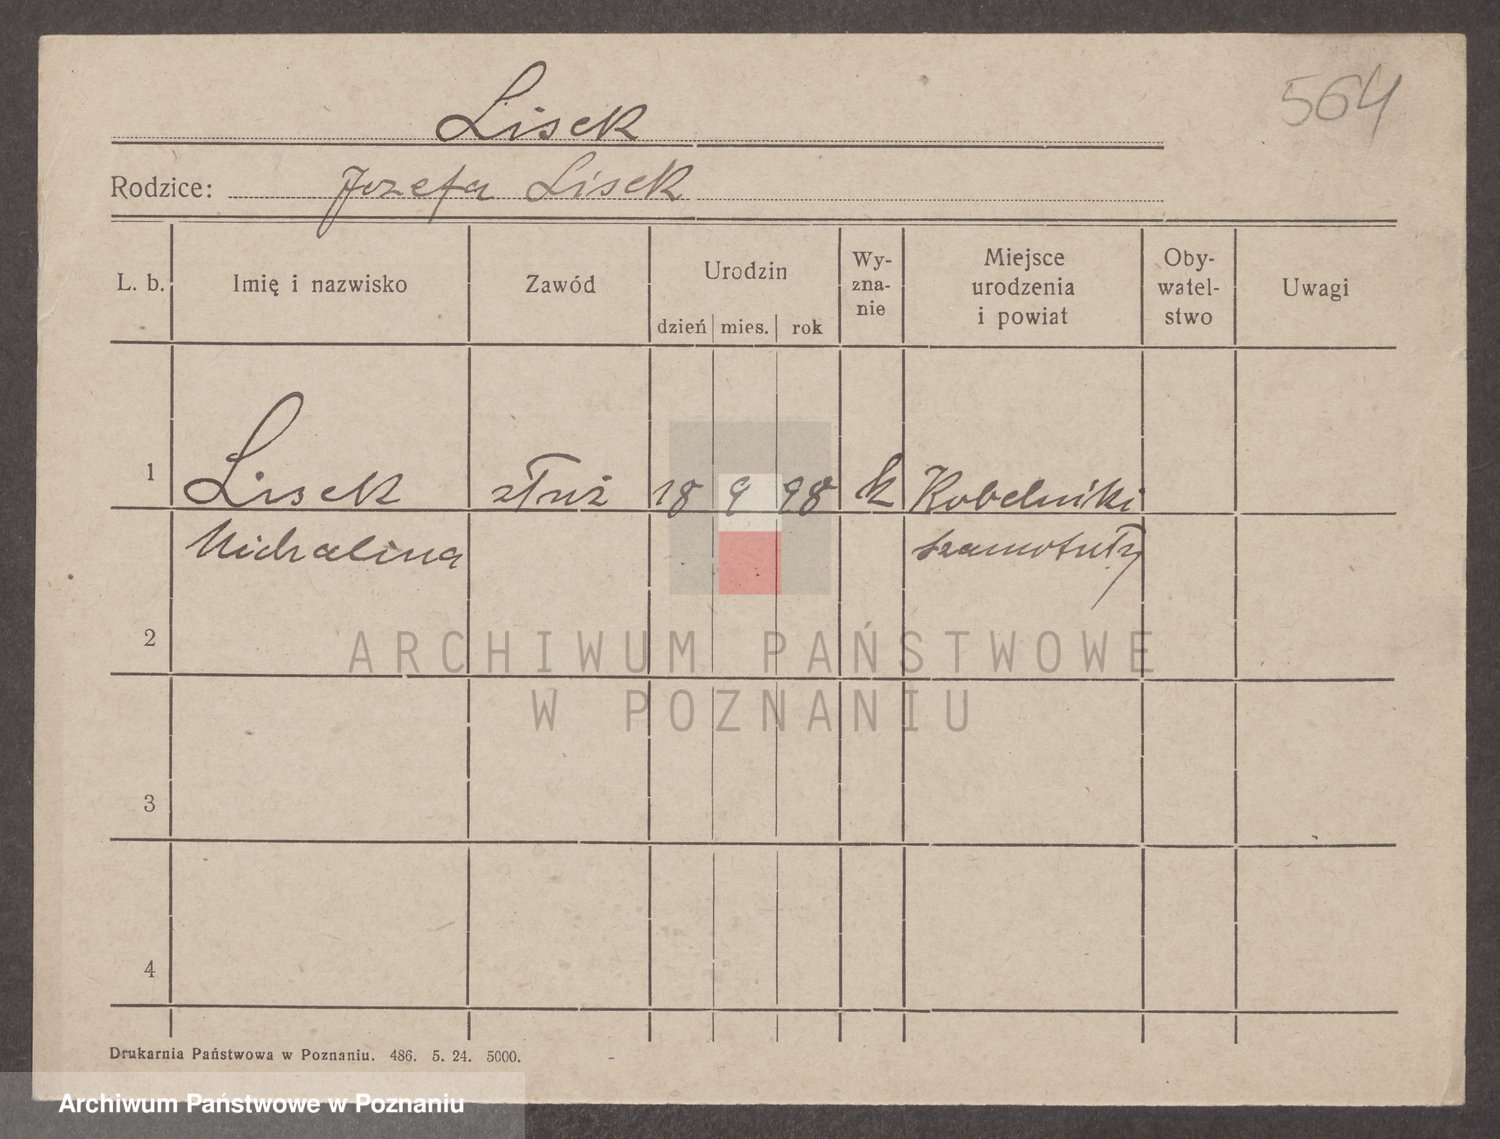 564
Lisek
Rodzice: Jozefa Lisek
L. b. Imię i nazwisko Zawód Urodzin dzień mies. rok Wy-zna-nie Miejsce urodzenia i powiat Oby-watel-stwo Uwagi
1 Lisek służ 18 9 98 k Kobelniki
Michalina szamotuły
2
3
4
Drukarnia Państwowa w Poznaniu. 486. 5. 24. 5000.
ARCHIWUM PAŃSTWOWE
W POZNANIU
Archiwum Państwowe w Poznaniu